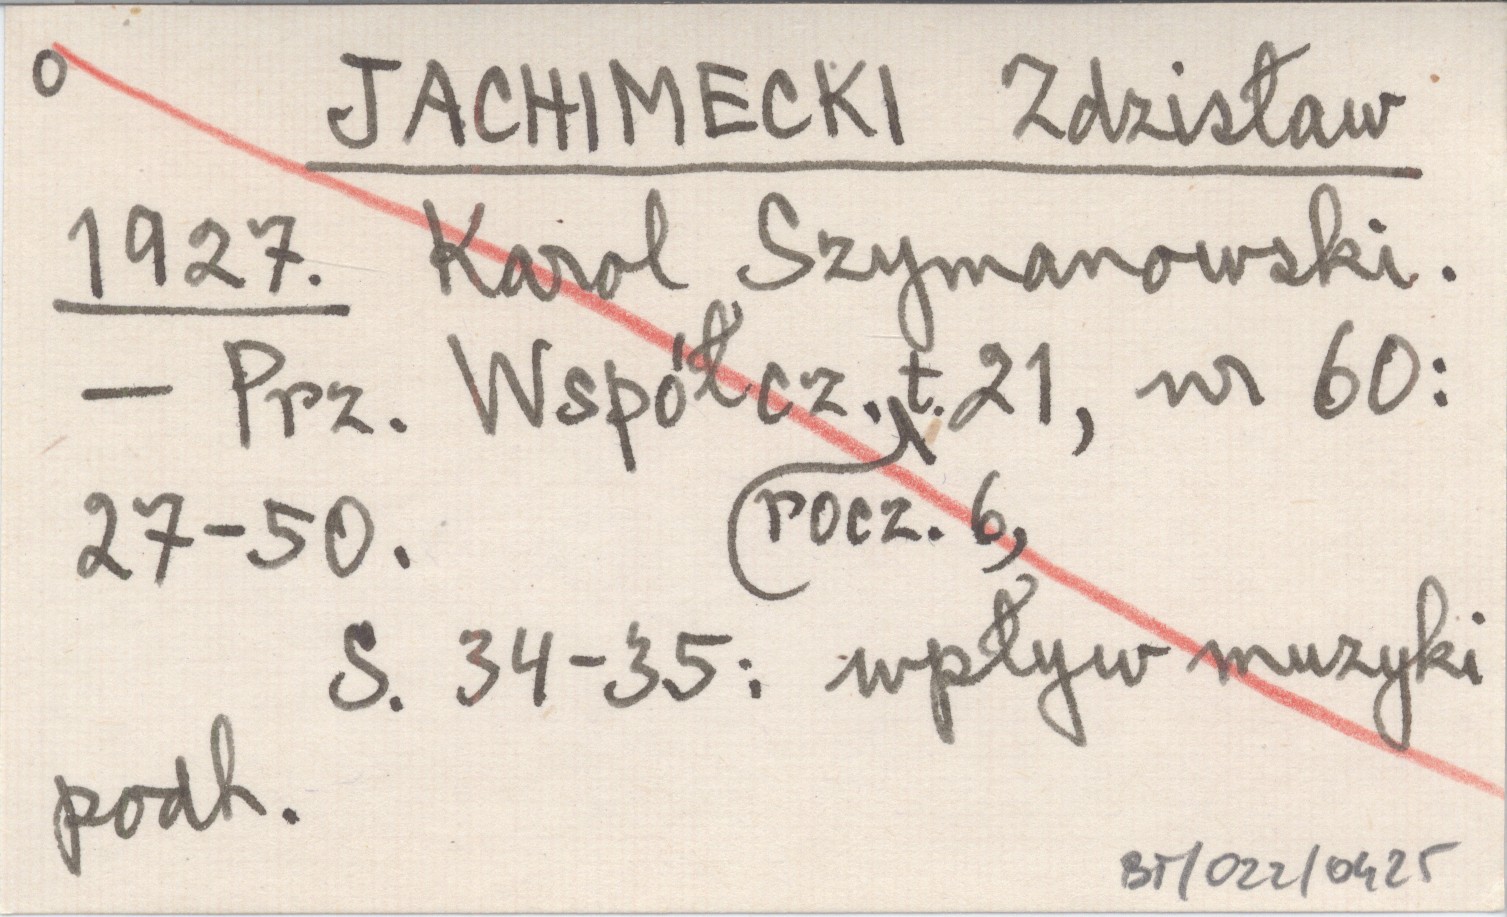 o JACHIMECKI Zdzisław
1927. Karol Szymanowski.
– Prz. Współcz. t. 21, nr 60:
27-50. rocz. 6,
S. 34-35: wpływ muzyki
podh.
BT/022/0425